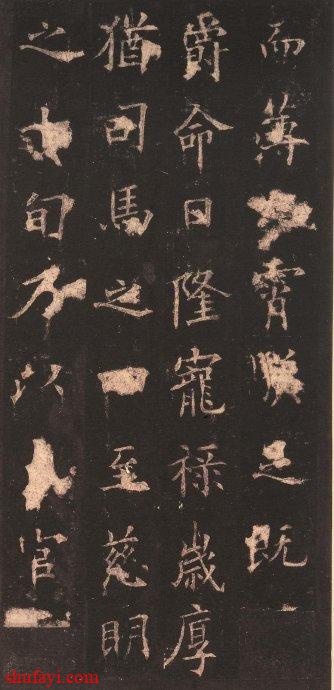 而薄霄足既
爵命日隆寵祿歲厚
猶司馬之至慈明
之旬以官
shufayi.com